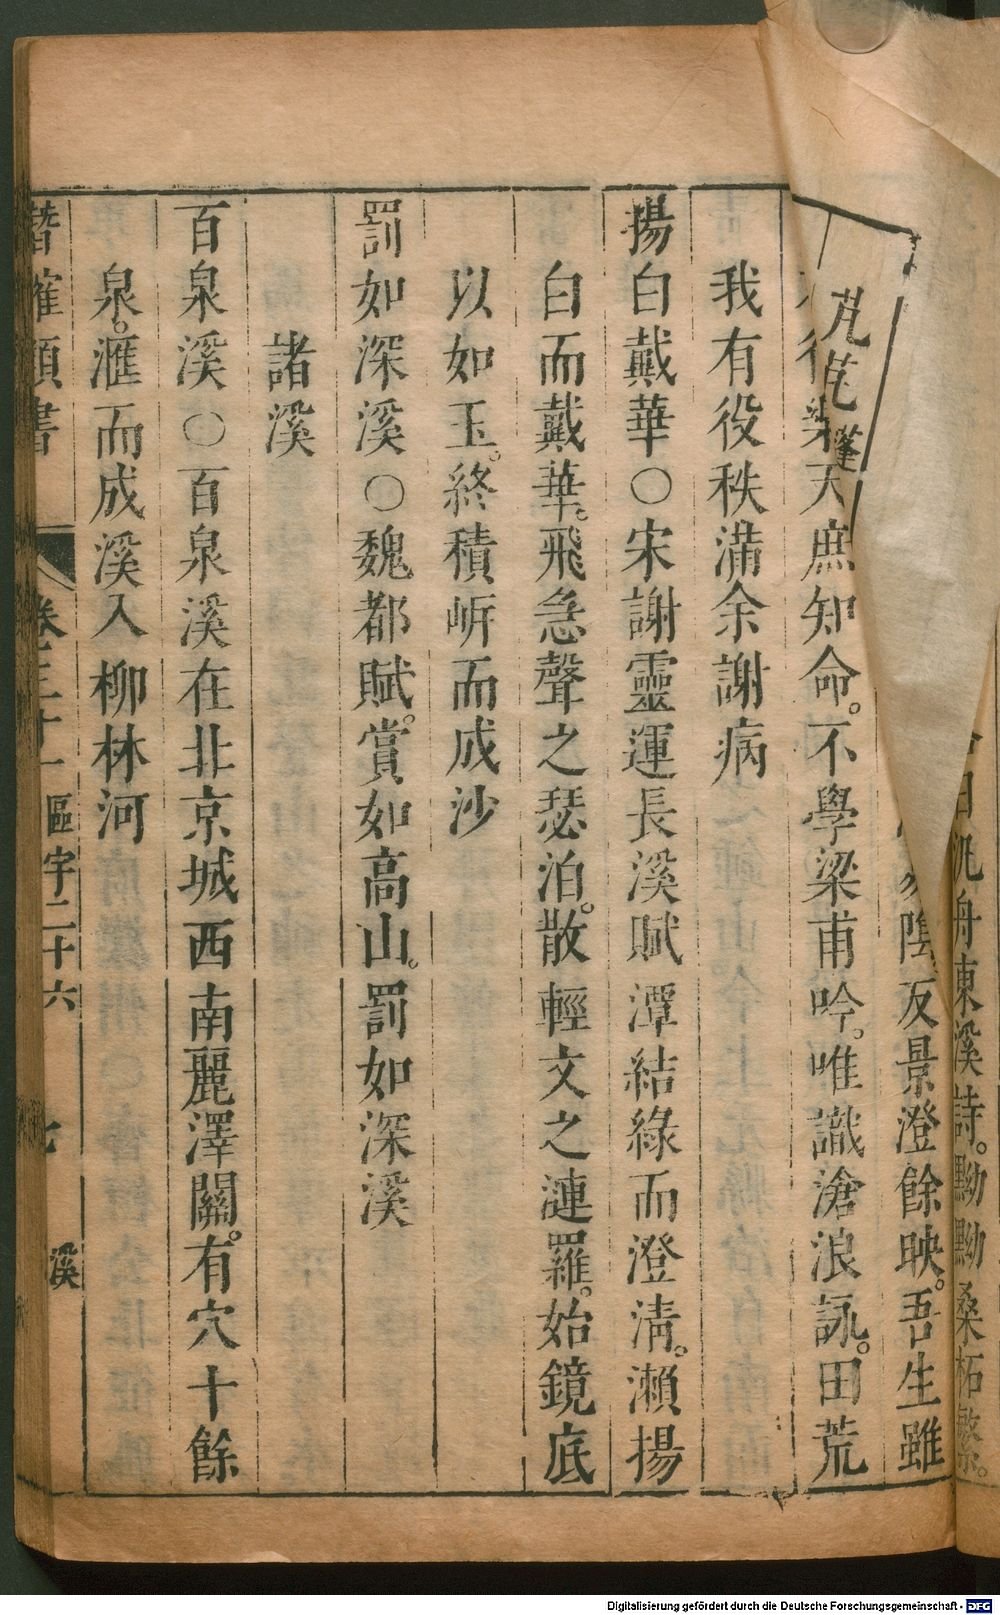 今日汎舟東溪詩。黝黝桑柘繁。
芃芃蓬
陰。反景澄餘映。吾生雖
樂天庶知命。不學梁甫吟。唯識滄浪詠。田荒
我有役秩滿余謝病
揚白戴華○宋謝靈運長溪賦潭結綠而澄清。瀨揚
白而戴華。飛急聲之瑟泊。散輕文之漣羅。始鏡底
以如玉。終積岍而成沙
罰如深溪○魏都賦。賞如高山。罰如深溪
諸溪
百泉溪○百泉溪在北京城西南麗澤關。有穴十餘
泉。滙而成溪入柳林河
潛確類書 卷三十一 區宇二十六 七 溪
Digitalisierung gefördert durch die Deutsche Forschungsgemeinschaft - DFG